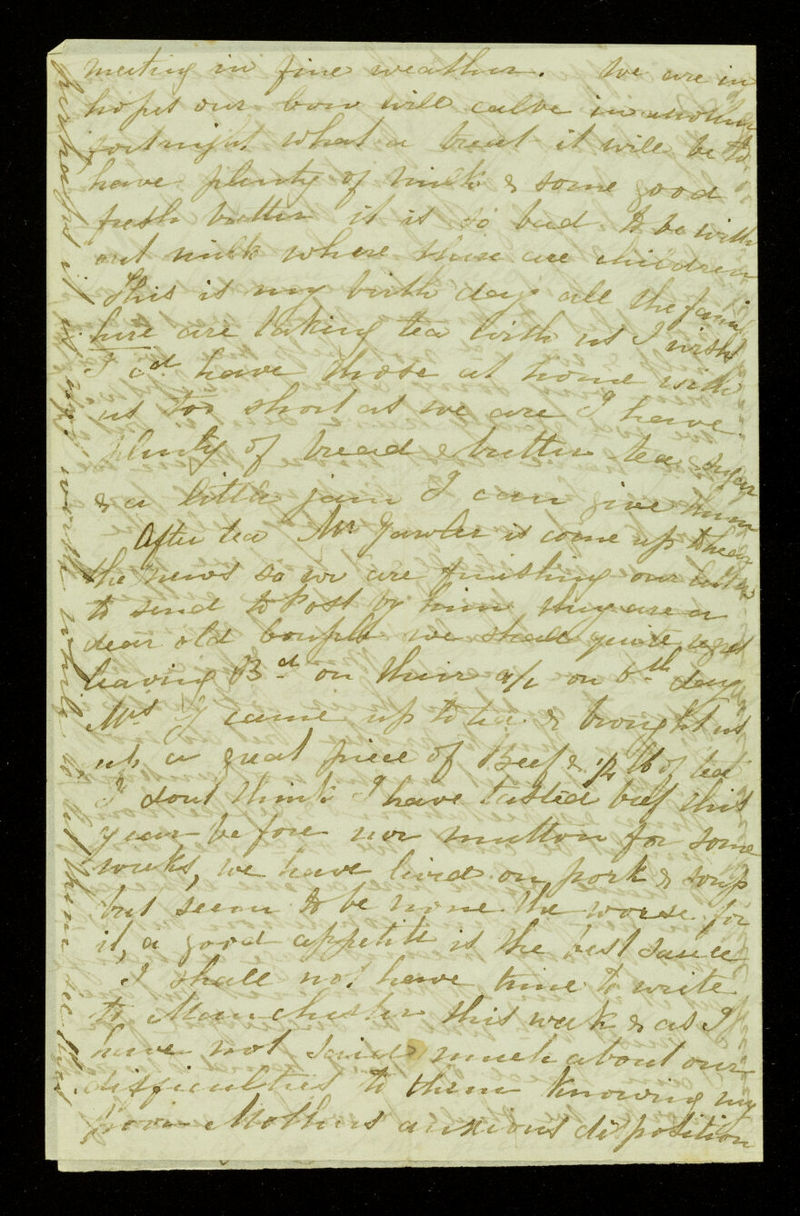 meeting in fine weather. We are in
hopes our cow will calve in another
fortnight what a treat it will be to
have plenty of milk & some good
fresh butter it is so bad to be with
out milk where there are children
This is my birth day all the fami
here are taking tea with us I wish
I cd have those at home with
us too short as we are I have
plenty of bread & butter tea sugar
& a little jam I can give them
After tea Mr Gawler is come up to hear
the news so we are finishing our letters
to send to Post by him they are a
dear old couple we shall quite regret
leaving Bd on their a/c on 6th day
Mrs G came up to tea & brought us
up a great piece of Beef & 1/4 lb of tea
I dont think I have tasted beef this
year before nor mutton for some
weeks, we have lived on pork & soup
but seem to be none the worse for
it, a good appetite is the best sauce
I shall not have time to write
to Manchester this week & as I
have not said much about our
difficulties to them knowing my
poor Mothers anxious disposition
perhaps it is not worth while to let them see this